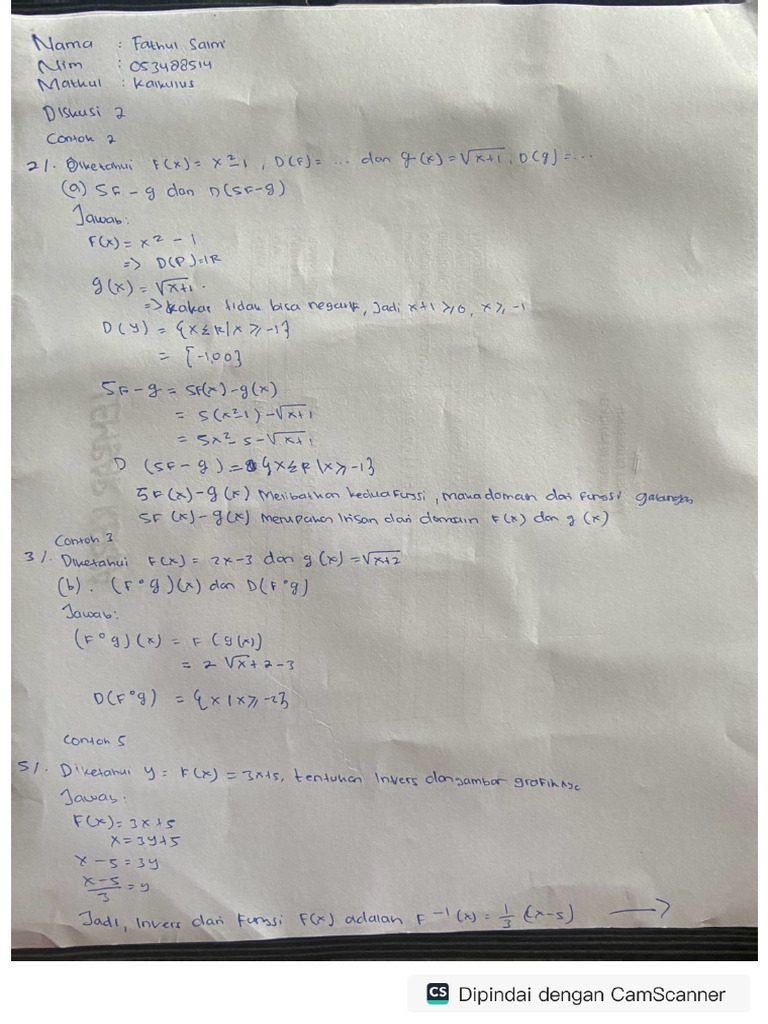 Nama : Fathul Saim
Nim : 053488514
Matkul : Kalkulus
Diskusi 2
Contoh 2
2/. Diketahui F(x) = x²-1, D(F) = ... dan g(x) = √x+1, D(g) = ...
(a) 5F - g dan D(5F-g)
Jawab:
F(x) = x² - 1
=> D(F)=IR
g(x) = √x+1.
=> akar tidak bisa negatif, Jadi x+1 ≥ 0, x ≥ -1
D(y) = {x ≤ R | x ≥ -1}
= [-1,00}
5F - g = 5F(x) - g(x)
= 5(x²-1) - √x+1
= 5x² - 5 - √x+1
D (5F - g) = {x ≤ R | x ≥ -1}
5F(x) - g(x) Melibatkan kedua fungsi, maka domain dari fungsi gabungan
5F(x) - g(x) merupakan Irisan dari domain F(x) dan g(x)
Contoh 3
3/. Diketahui F(x) = 2x-3 dan g(x) = √x+2
(b). (F°g)(x) dan D(F°g)
Jawab:
(F°g)(x) = F(g(x))
= 2 √x+2-3
D(F°g) = {x | x ≥ -2}
Contoh 5
5/. Diketahui y = F(x) = 3x+5, tentukan Invers dan gambar grafiknya
Jawab:
F(x) = 3x+5
x = 3y+5
x - 5 = 3y
x-5/3 = y
Jadi, Invers dari Fungsi F(x) adalah F⁻¹(x) = 1/3 (x-5) →
CS Dipindai dengan CamScanner